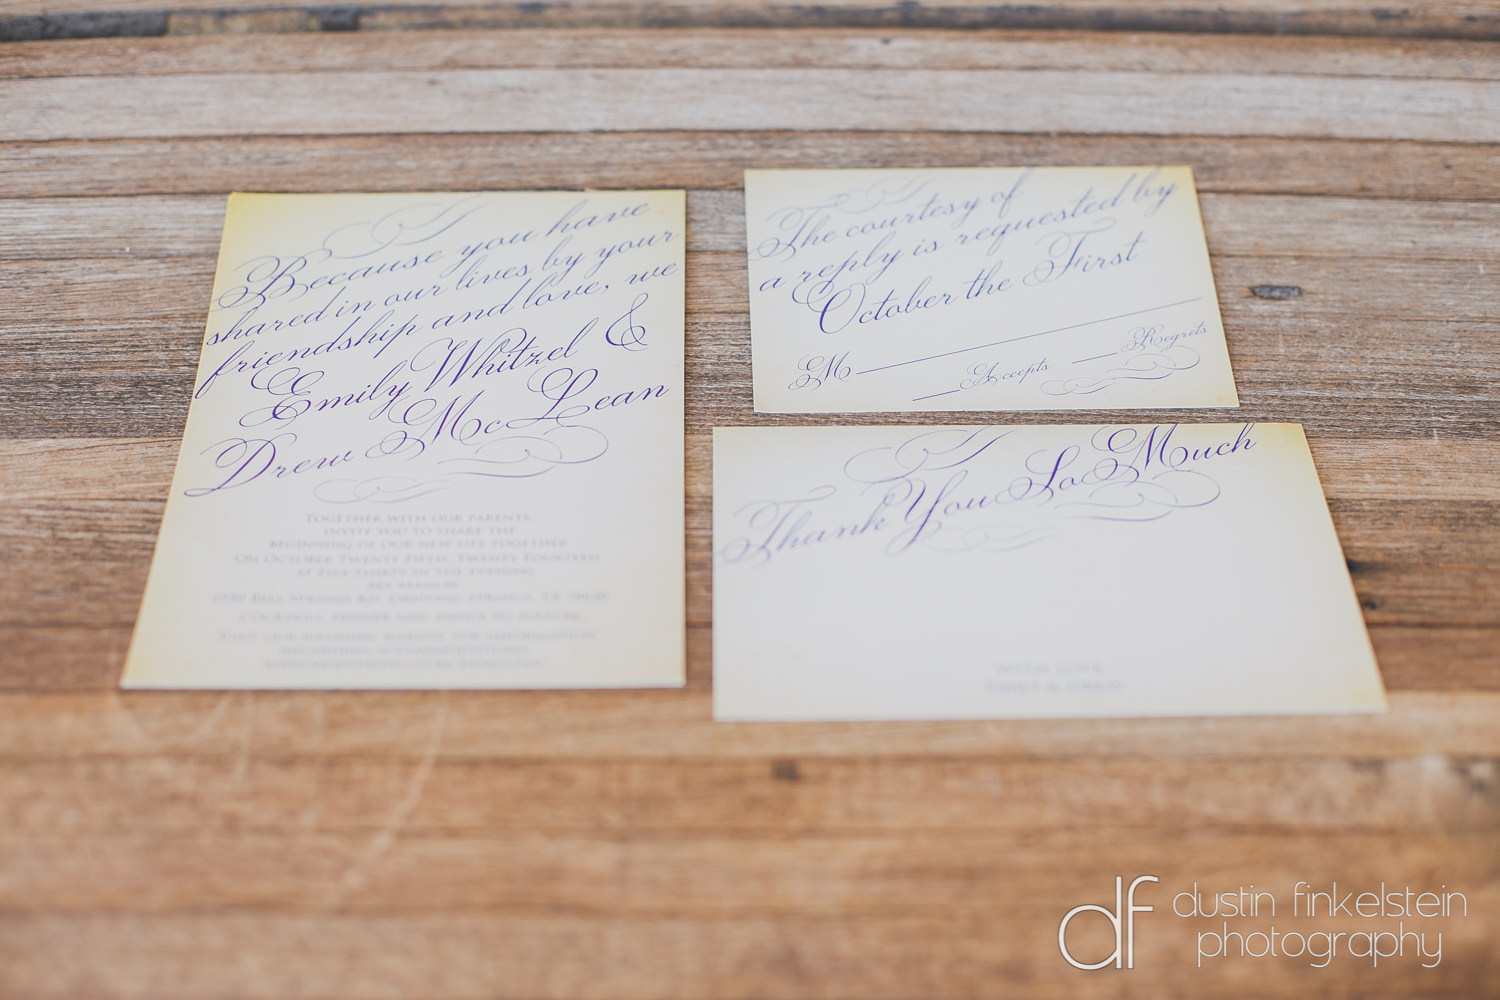 Because you have
shared in our lives by your
friendship and love, we
Emily Whitzel &
Drew McLean
Together with our parents,
invite you to share the
beginning of our new life together
On October Twenty Fifth, Twenty Fourteen
at Five Thirty in The Evening
Bell Springs Rd. Dripping Springs, TX
Cocktails, dinner and dance to follow
The courtesy of
a reply is requested by
October the First
M
Accepts
Regrets
Thank You So Much
Emily & Drew
df dustin finkelstein
photography